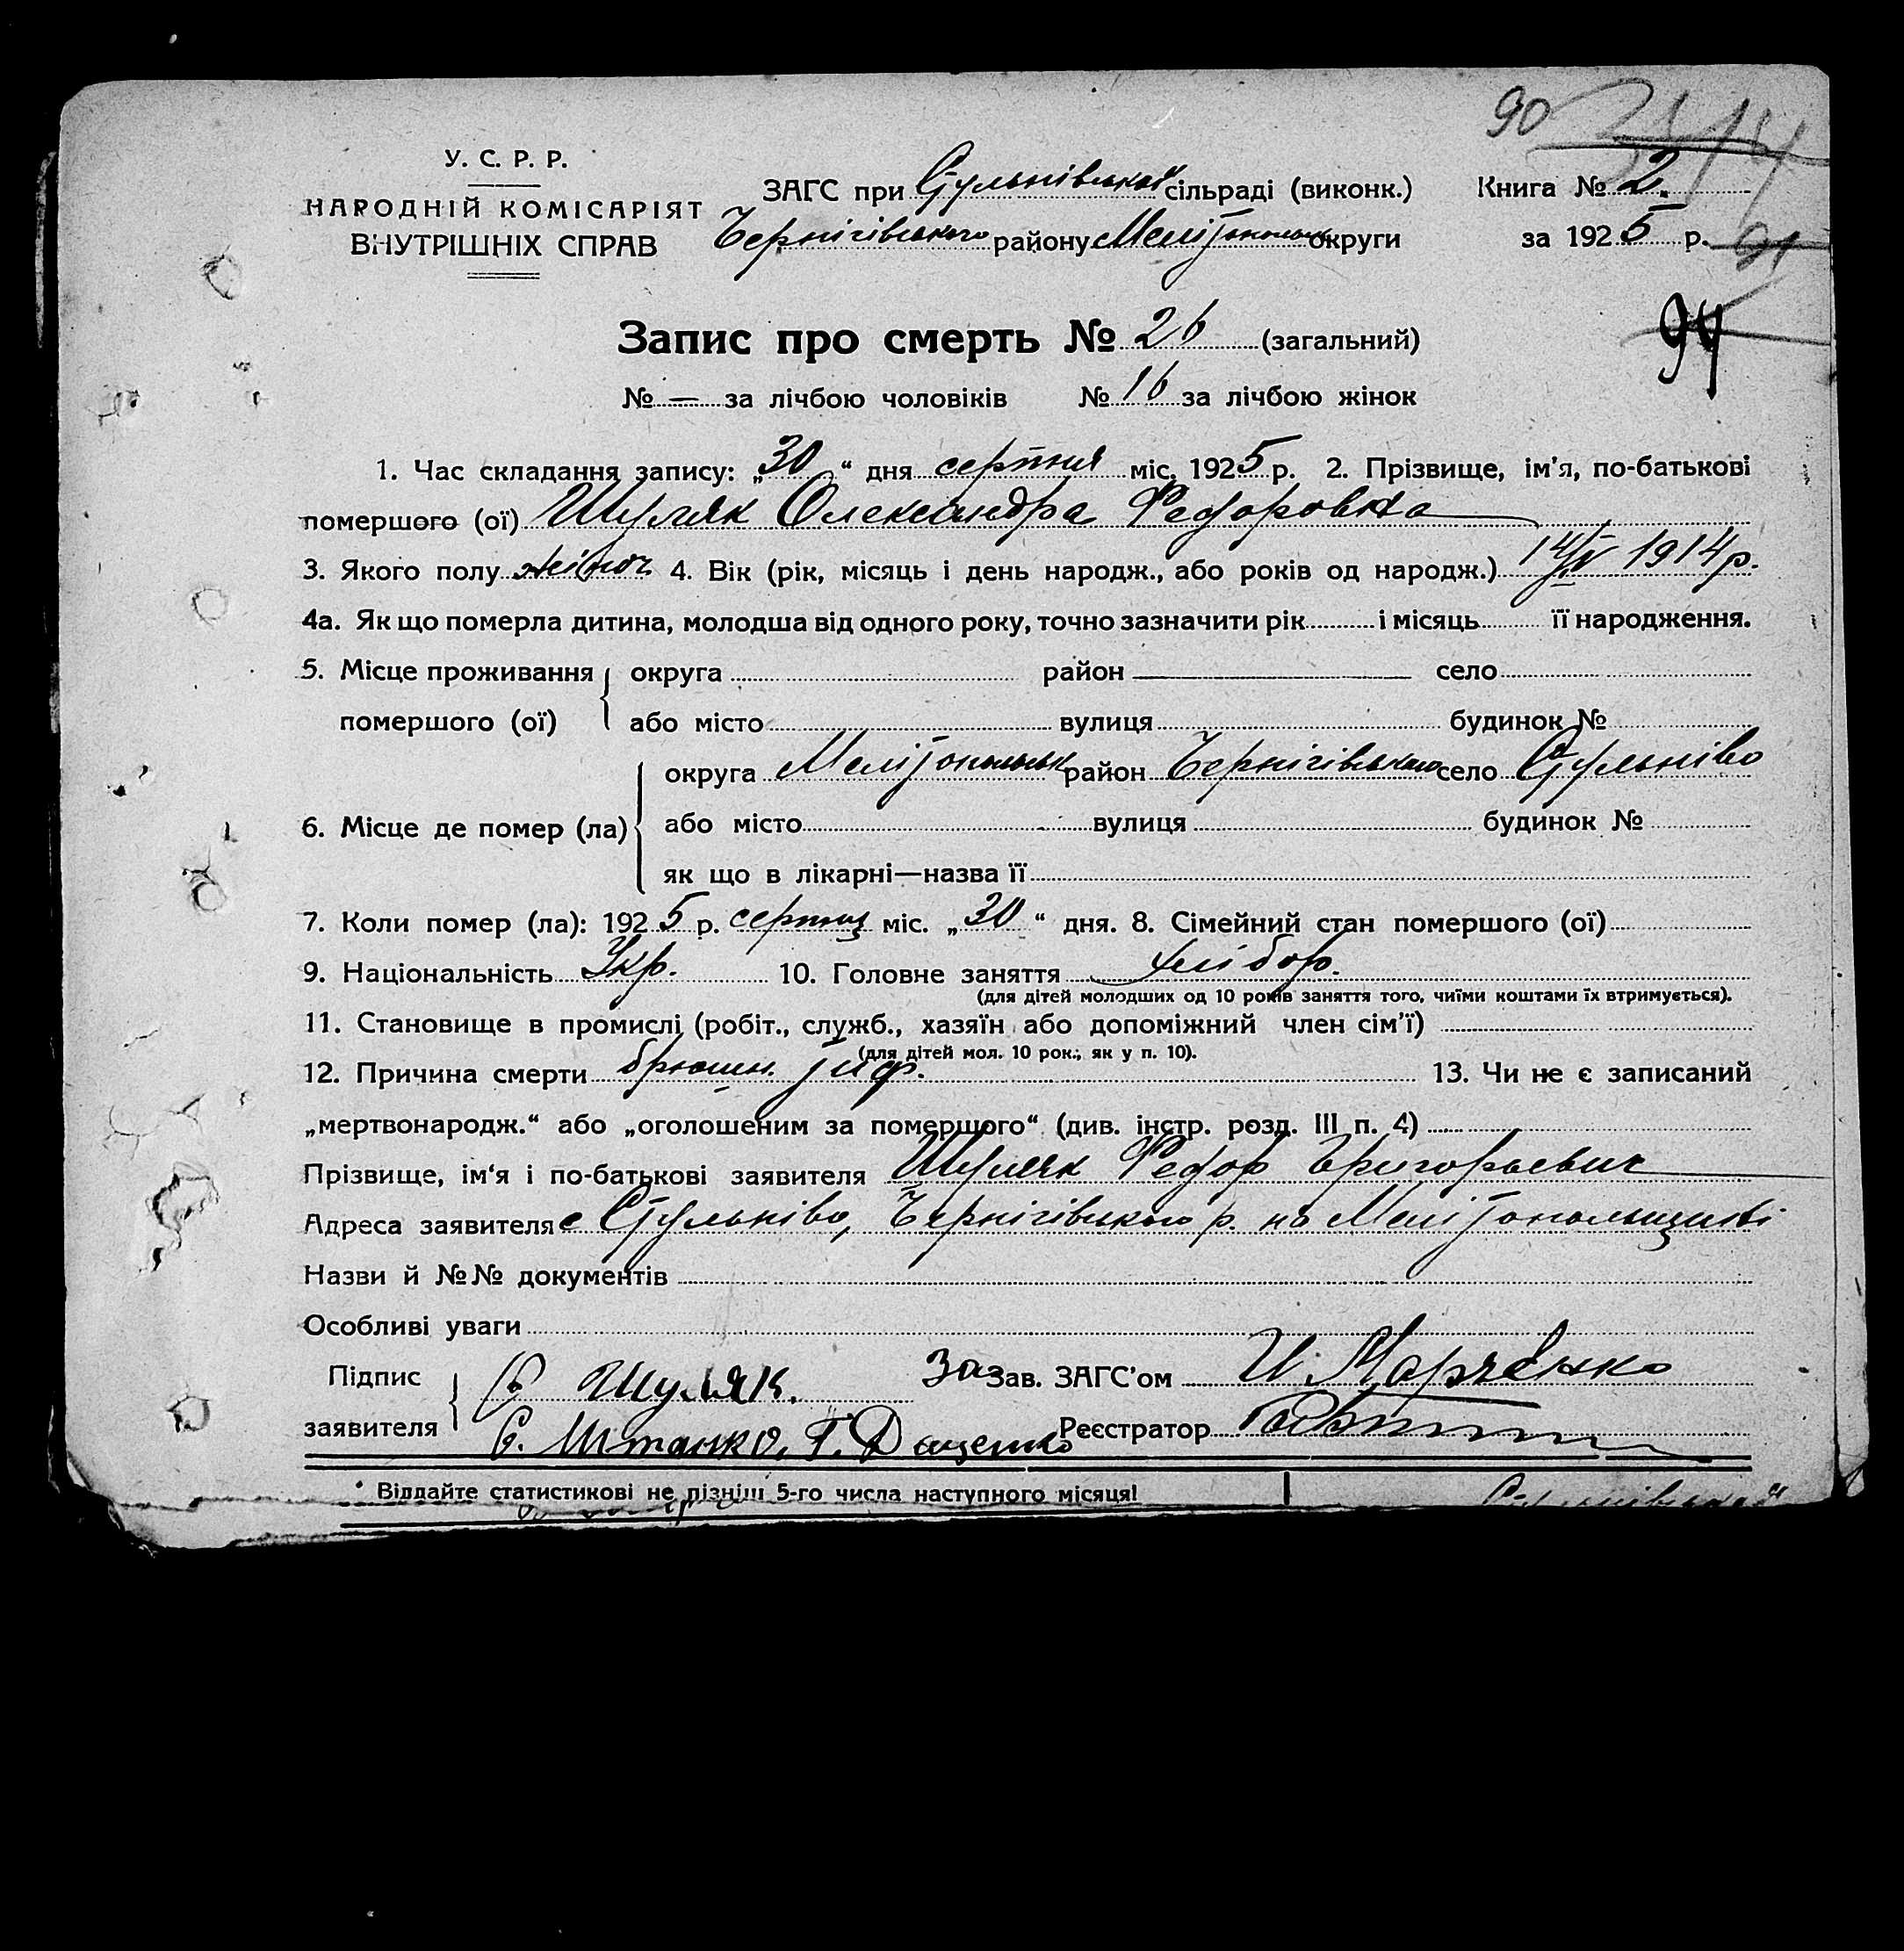 90
У. С. Р. Р.
НАРОДНІЙ КОМІСАРІЯТ
ВНУТРІШНІХ СПРАВ
ЗАГС при Стульнівській сільраді (виконк.) Книга № 2.
Чернігівського району Мелітопольськ округи за 1925 р. 91
94
Запис про смерть № 26 (загальний)
№ — за лічбою чоловіків № 16 за лічбою жінок
1. Час складання запису: „30“ дня серпня міс. 1925 р. 2. Прізвище, ім'я, по-батькові
помершого (ої) Шуляк Олександра Федоровна
3. Якого полу жіноч 4. Вік (рік, місяць і день народж., або років од народж.) 14/IV 1914 р.
4а. Як що померла дитина, молодша від одного року, точно зазначити рік і місяць її народження.
5. Місце проживання помершого (ої) округа район село
або місто вулиця будинок №
6. Місце де помер (ла) округа Мелітопольськ район Чернігівського село Стульніво
або місто вулиця будинок №
як що в лікарні—назва її
7. Коли помер (ла): 1925 р. серпня міс. „30“ дня. 8. Сімейний стан помершого (ої)
9. Національність Укр. 10. Головне заняття хлібор.
(для дітей молодших од 10 років заняття того, чиїми коштами їх втримується).
11. Становище в промислі (робіт., служб., хазяїн або допоміжний член сім'ї)
(для дітей мол. 10 рок., як у п. 10).
12. Причина смерти брюшн. тиф. 13. Чи не є записаний
„мертвонародж.“ або „оголошеним за померщого“ (див. інстр. розд. III п. 4)
Прізвище, ім'я і по-батькові заявителя Шуляк Федор Григорьевич
Адреса заявителя с Стульніво, Чернігівського р. на Мелітопольщині
Назви й №№ документів
Особливі уваги
Підпис заявителя Ф Шуляк. За Зав. ЗАГС'ом И. Марченко
С. Штанко, Г. Даценко Реєстратор
* Віддайте статистикові не пізніш 5-го числа наступного місяця!